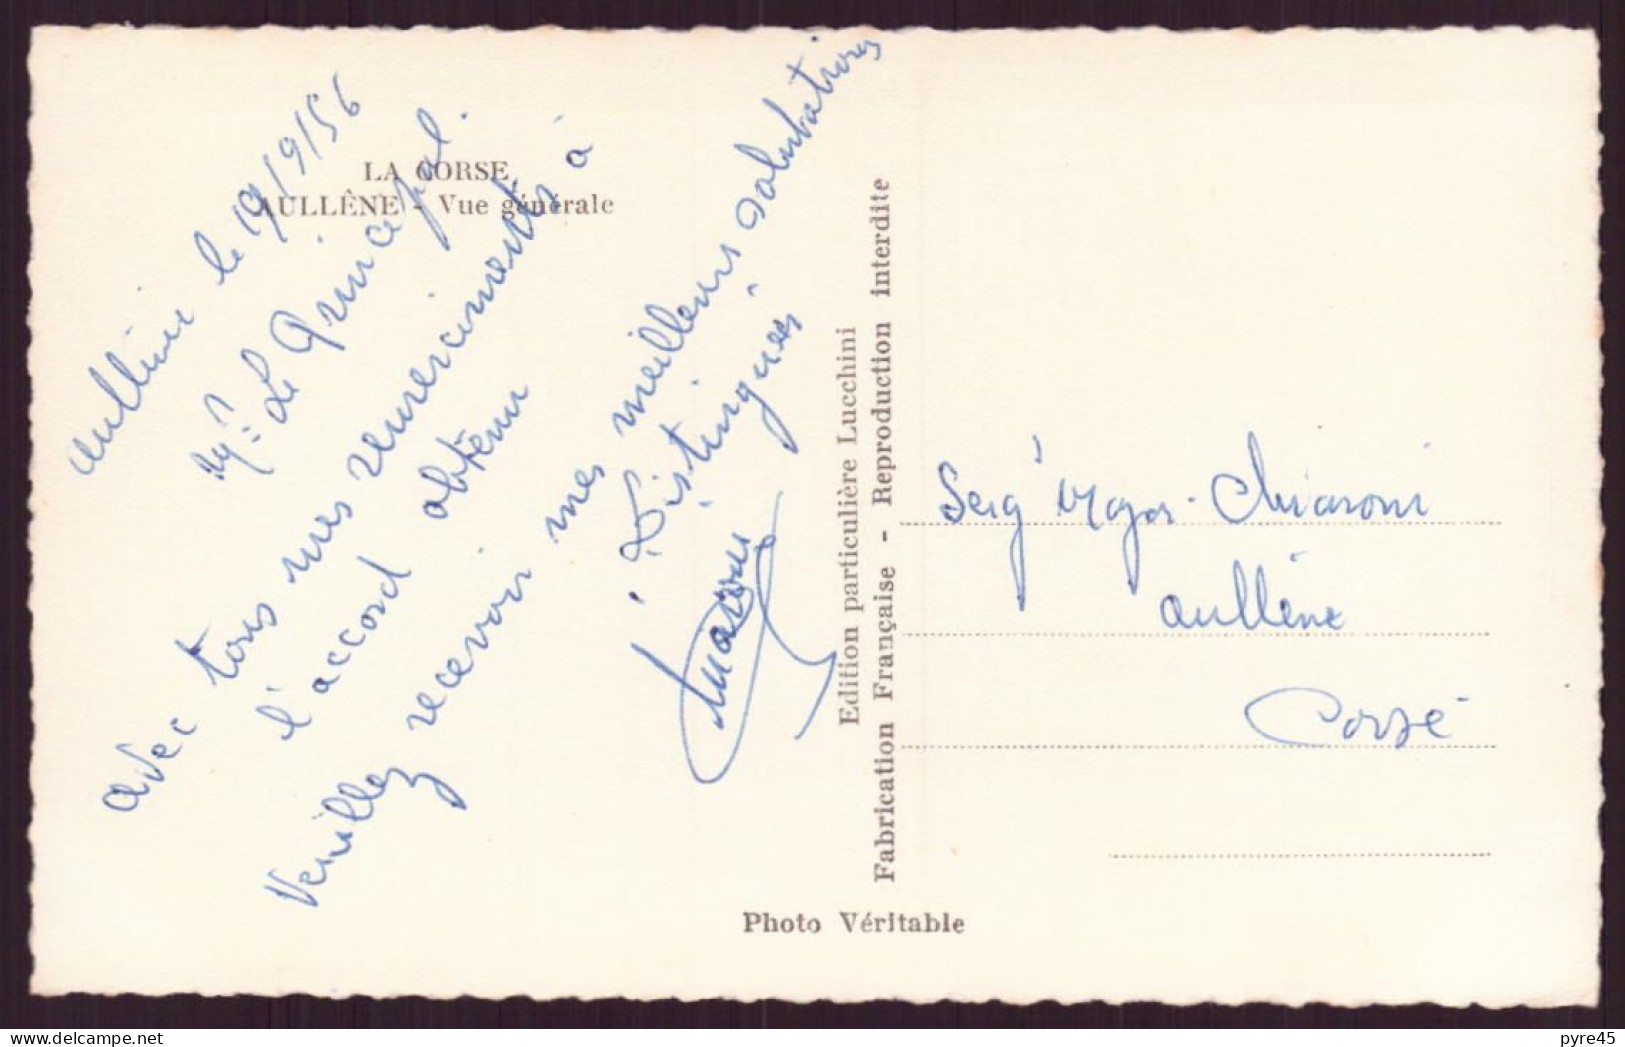 LA CORSE
AULLÊNE - Vue générale
Aullène le 19/9/56
Mr. Le Principal.
avec tous mes remerciments à
l'accord obtenu
Veuillez recevoir mes meilleurs salutations
Distinguées
Edition particulière Lucchini
Fabrication Française - Reproduction interdite
Serg Major Chiaroni
Aullène
Corse
Photo Véritable
pyre45